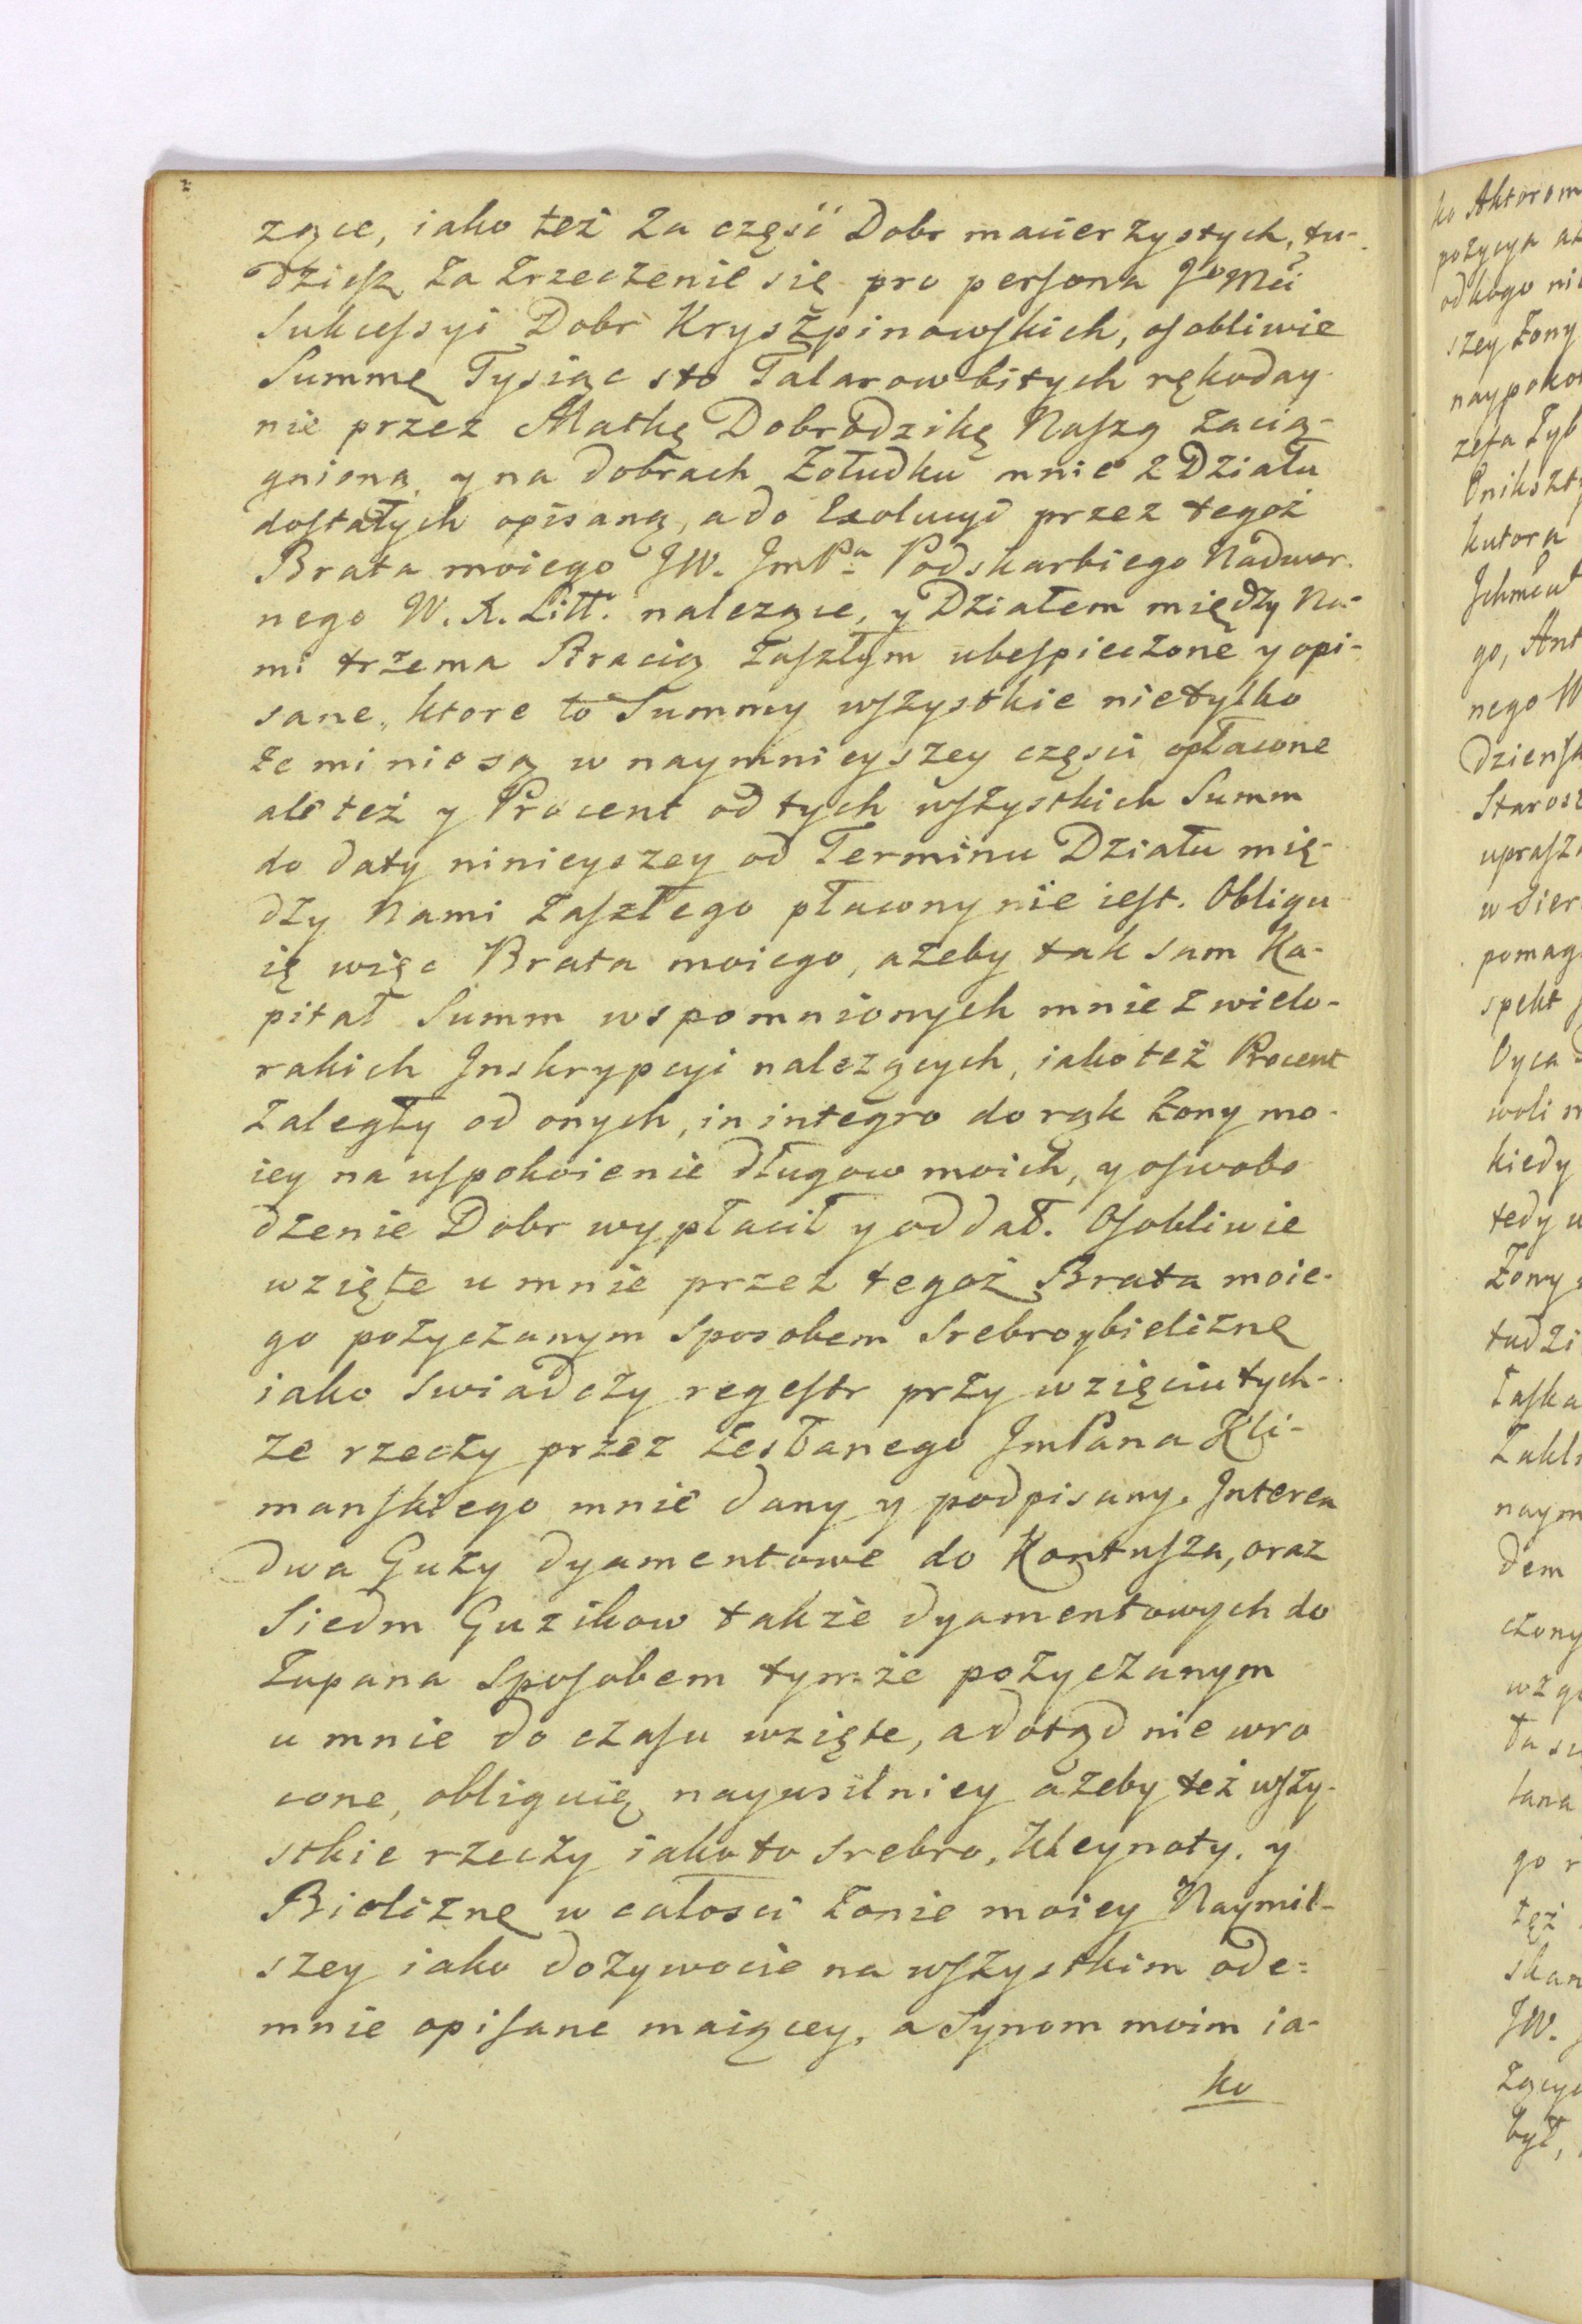 zące, iako też za część Dobr macierzystych, tu-
dzieſz za zrzeczenie się pro perſona JoMći
Sukceſsyi Dobr Kryszpinowſkich, oſobliwie
Summę Tysiąc sto Talarow bitych rękoday-
nie przez Matkę Dobrodzikę Naſzą zacią-
gnioną, y na dobrach Żołudku mnie z Działu
doſtałych opisaną, a do Exolucyi przez tegoż
Brata moiego JW. JmPa Podskarbiego Nadwor-
nego W. X. Litt. nalezące, y Działem między Na-
mi trzema Bracią zaſzłym ubeſpieczone y opi-
sane, ktore to Summy wſzystkie nietylko
że mi nie są w naymnieyszey częsci opłacone
ale też y Procent od tych wſzystkich Summ
do daty ninieyszey od Terminu Działu mię-
dzy Nami zaſzłego płacony nie ieſt. Obligu-
ię więc Brata moiego, azeby tak sam Ka-
pitał Summ wspomnionych mnie z wielo-
rakich Jnskrypcyi nalezących, iako też Procent
zaległy od onych, in integro do rąk Żony mo-
iey na uſpokoienie długow moich, y oſwobo
dzenie Dobr wypłacił y oddał. Oſobliwie
wzięte u mnie przez tegoż Brata moie-
go pożyczanym sposobem Srebro y bieliznę
iako swiadczy regeſtr przy wzięciu tych-
że rzeczy przez zesłanego JmPana Kli-
manſkiego mnie dany y podpisany. Jnterea
dwa Guzy dyamentowe do Kontuſza, oraz
Siedm Guzikow także dyamentowych do
Żupana Spoſobem tymże pożyczanym
u mnie do czaſu wzięte, a dotąd nie wro
cone, obliguię nayusilniey ażeby też wſzy-
stkie rzeczy iako to srebro, Kleynoty, y
Bieliznę w całosci Żonie moiey Naymil-
szey iako dożywocie na wſzystkim ode=
mnie opiſane maiącey, a Synom moim ia-
ko
ko Aktorom
pozycya
od kogo
szey Żony
Onikszt
kutora
go, Ant
nego W
Staros
pomag
spekt
Oyca
woli
kiedy
tedy
Żony
tudzi
łaſka
naym
dem
JW.
był,